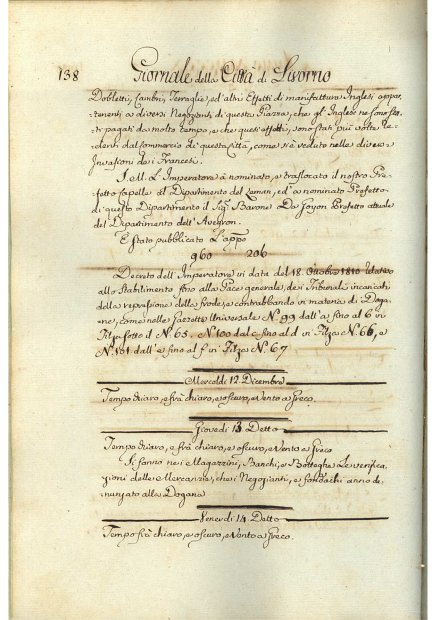 138 Giornale della Città di Livorno
Dobletti, Cambri, Terraglie, ed'altri Effetti di manifattura Inglesi appar
tenenti a diversi Negozianti di questa Piazza, che gl'Inglesi ne sono sta
ti pagati da molto tempo, e che questi effetti, sono stati più volte
dal commercio di questa Città, come si è veduto nelle diverse
Invasioni dei Francesi.
S. M. L'Imperatore à nominato, e traslocato il nostro Pre
fetto Capelle al Dipartimento del Leman, ed'a nominato Prefetto
di questo Dipartimento il Sig: Barone De Goyon Prefetto attuale
del Dipartimento dell'Aveyron.
È stato pubblicato L'appo
960 206
Decreto dell'Imperatore in data del 18. Ottobre 1810 relativo
allo Stabilimento fino alla Pace generale, dei Tribunali incaricati
della repressione della frode, e contrabbando in materia di Doga
ne, come nelle Gazzette Universale N. 99 dall'a fino al 6 in
Filza sotto il N. 65. N. 100 dal c fino al d in Filza N. 66, e
N. 101 dall'e fino al f in Filza N. 67
Mercoldì 12. Dicembre
Tempo chiaro, e frà chiaro, e oscuro, e Vento a Greco.
Giovedì 13 Detto
Tempo chiaro, e frà chiaro, e oscuro, e Vento a Greco
Si fanno nei Magazzini, Banchi, e Botteghe Le verifica
zioni delle Mercanzie, che i Negozianti, e fondachi anno de
nunziato alla Dogana
Venerdì 14 Detto
Tempo frà chiaro, e oscuro, e Vento a Greco.